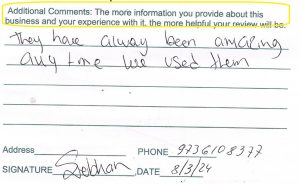 Additional Comments: The more information you provide about this
business and your experience with it, the more helpful your review will be.
They have alway been amazing
any time we used them
Address
PHONE 9736108377
SIGNATURE DATE 8/3/24